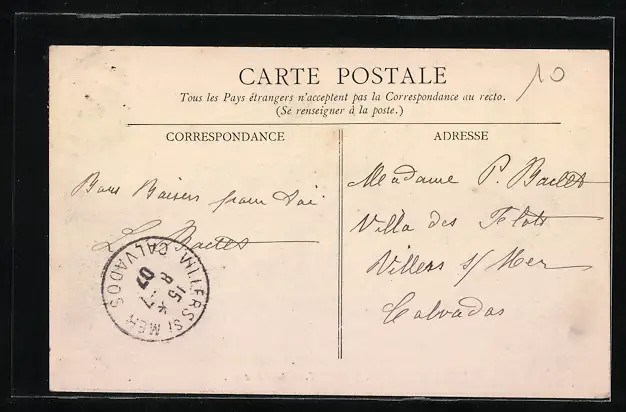 CARTE POSTALE
Tous les Pays étrangers n'acceptent pas la Correspondance au recto.
(Se renseigner à la poste.)
CORRESPONDANCE
ADRESSE
10
Bons Baisers pour toi
Madame P.
Villa des
Villers s/ Mer
Calvados
VILLERS S/ MER CALVADOS
15 * 7
8
07